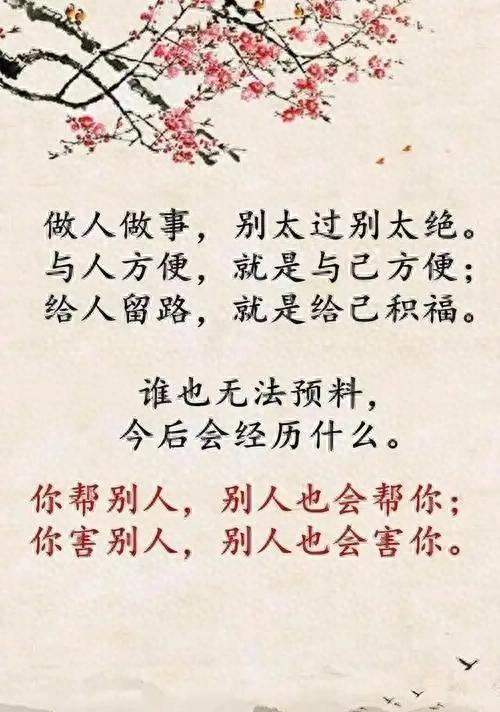 做人做事，别太过别太绝。
与人方便，就是与己方便；
给人留路，就是给己积福。
谁也无法预料，
今后会经历什么。
你帮别人，别人也会帮你；
你害别人，别人也会害你。